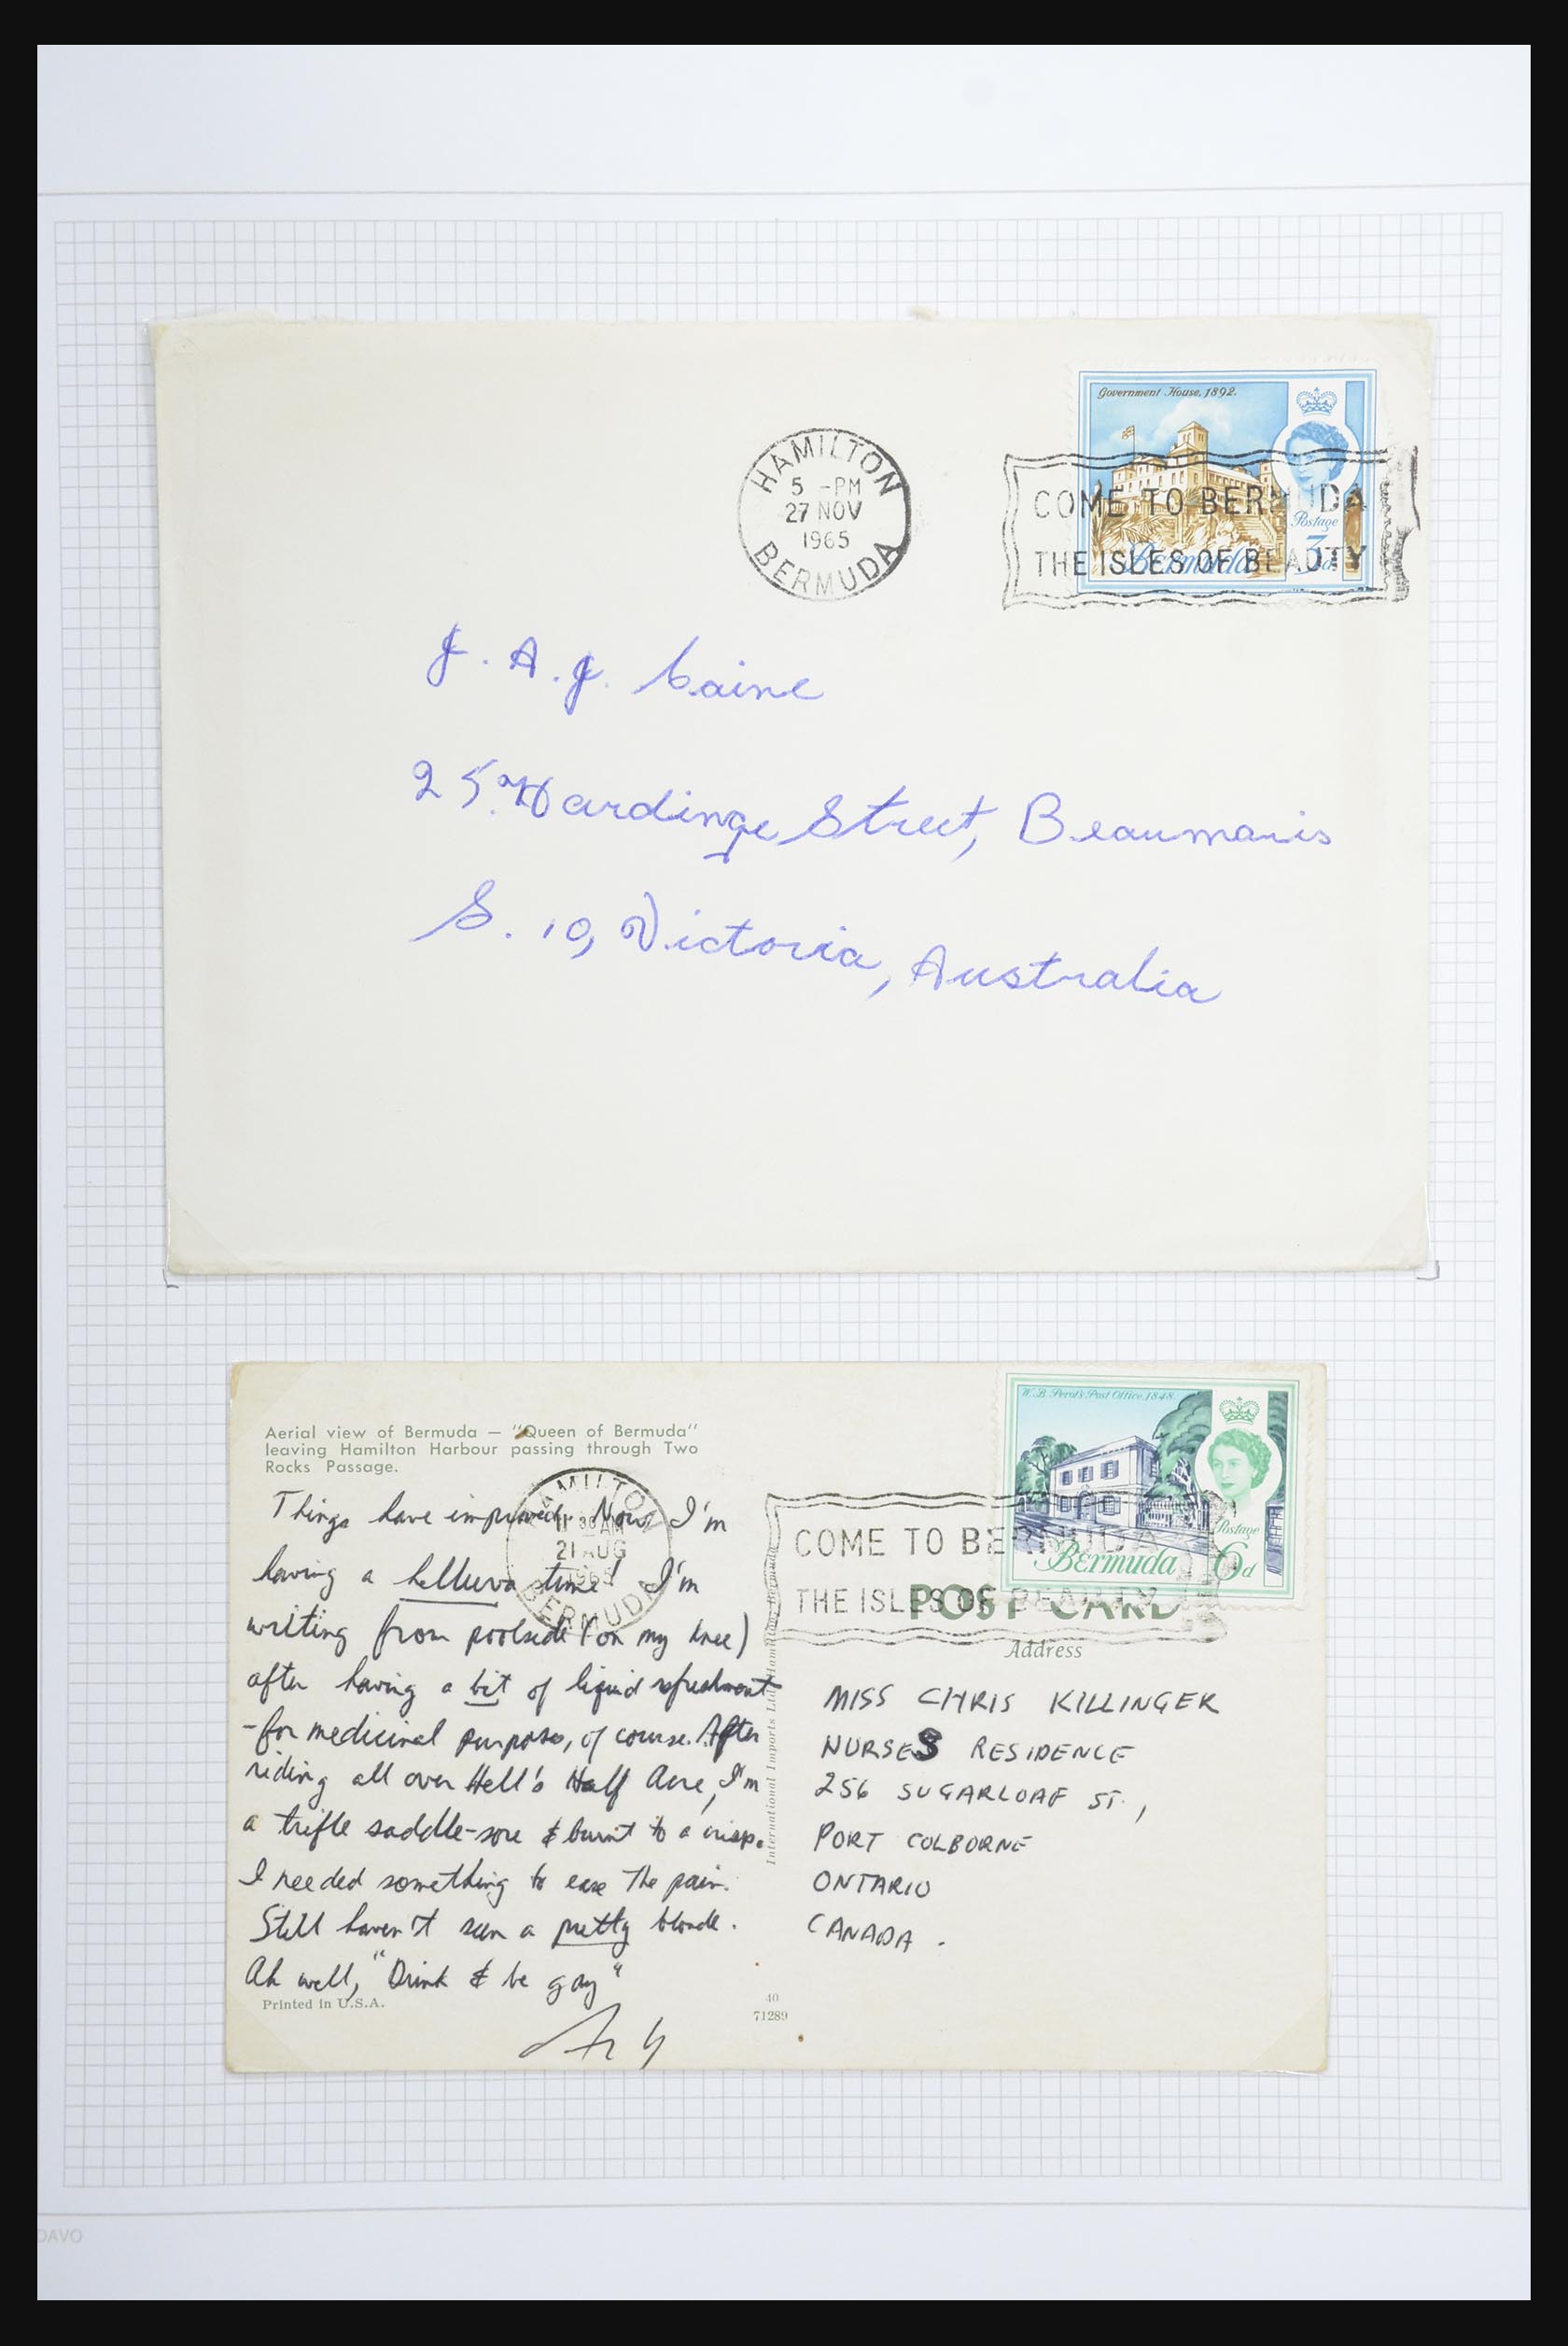 Government House, 1892.
HAMILTON
5 -PM
27 NOV
1965
BERMUDA
COME TO BERMUDA
THE ISLES OF BEAUTY
Postage
3d
Bermuda
J. A. J. Caine
25 Hardinge Street, Beaumaris
S. 10, Victoria, Australia
W. B. Perot's Post Office, 1848.
Postage
6d
Bermuda
Aerial view of Bermuda — "Queen of Bermuda"
leaving Hamilton Harbour passing through Two
Rocks Passage.
HAMILTON
11 30 AM
21 AUG
1965
BERMUDA
COME TO BERMUDA
THE ISLES OF BEAUTY
POST CARD
Address
Things have improved. Now I'm
having a helluva time! I'm
writing from poolside (on my knee)
after having a bit of liquid refreshment
-for medicinal purposes, of course. After
riding all over Hell's Half Acre, I'm
a trifle saddle-sore & burnt to a crisp.
I needed something to ease the pain.
Still haven't seen a pretty blonde.
Ah well, "Drink & be gay"
Printed in U.S.A.
International Imports Ltd. Hamilton
40
71289
MISS CHRIS KILLINGER
NURSES RESIDENCE
256 SUGARLOAF ST.,
PORT COLBORNE
ONTARIO
CANADA.
DAVO